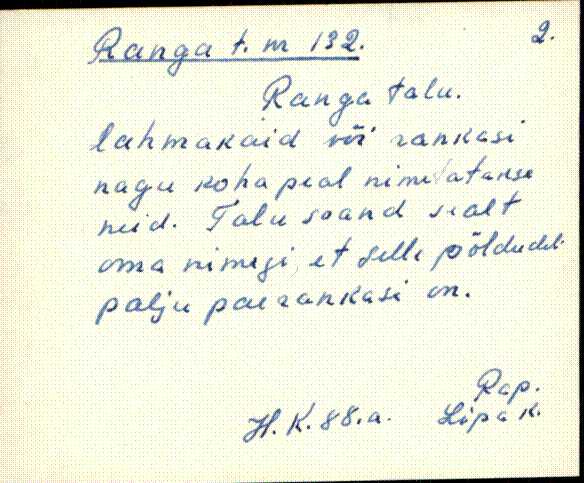 Ranga t. m 132.
2.
Ranga talu.
lahmakaid või rankasi
nagu koha peal nimetatakse
neid. Talu saand sealt
oma nimegi, et selle põldudel
palju paerankasi on.
Rap.
H. K. 88. a. Lipa k.